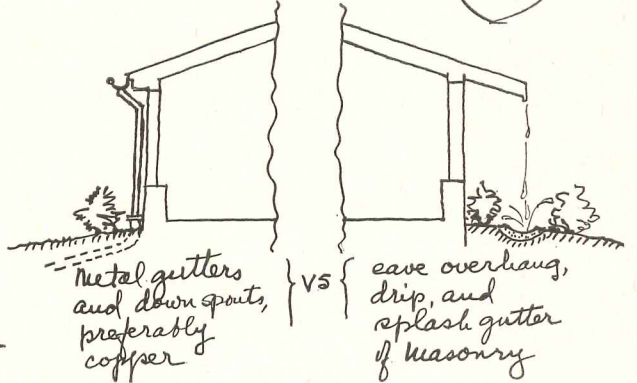 Metal gutters
and down spouts,
preferably
copper
VS
eave overhang,
drip, and
splash gutter
of masonry